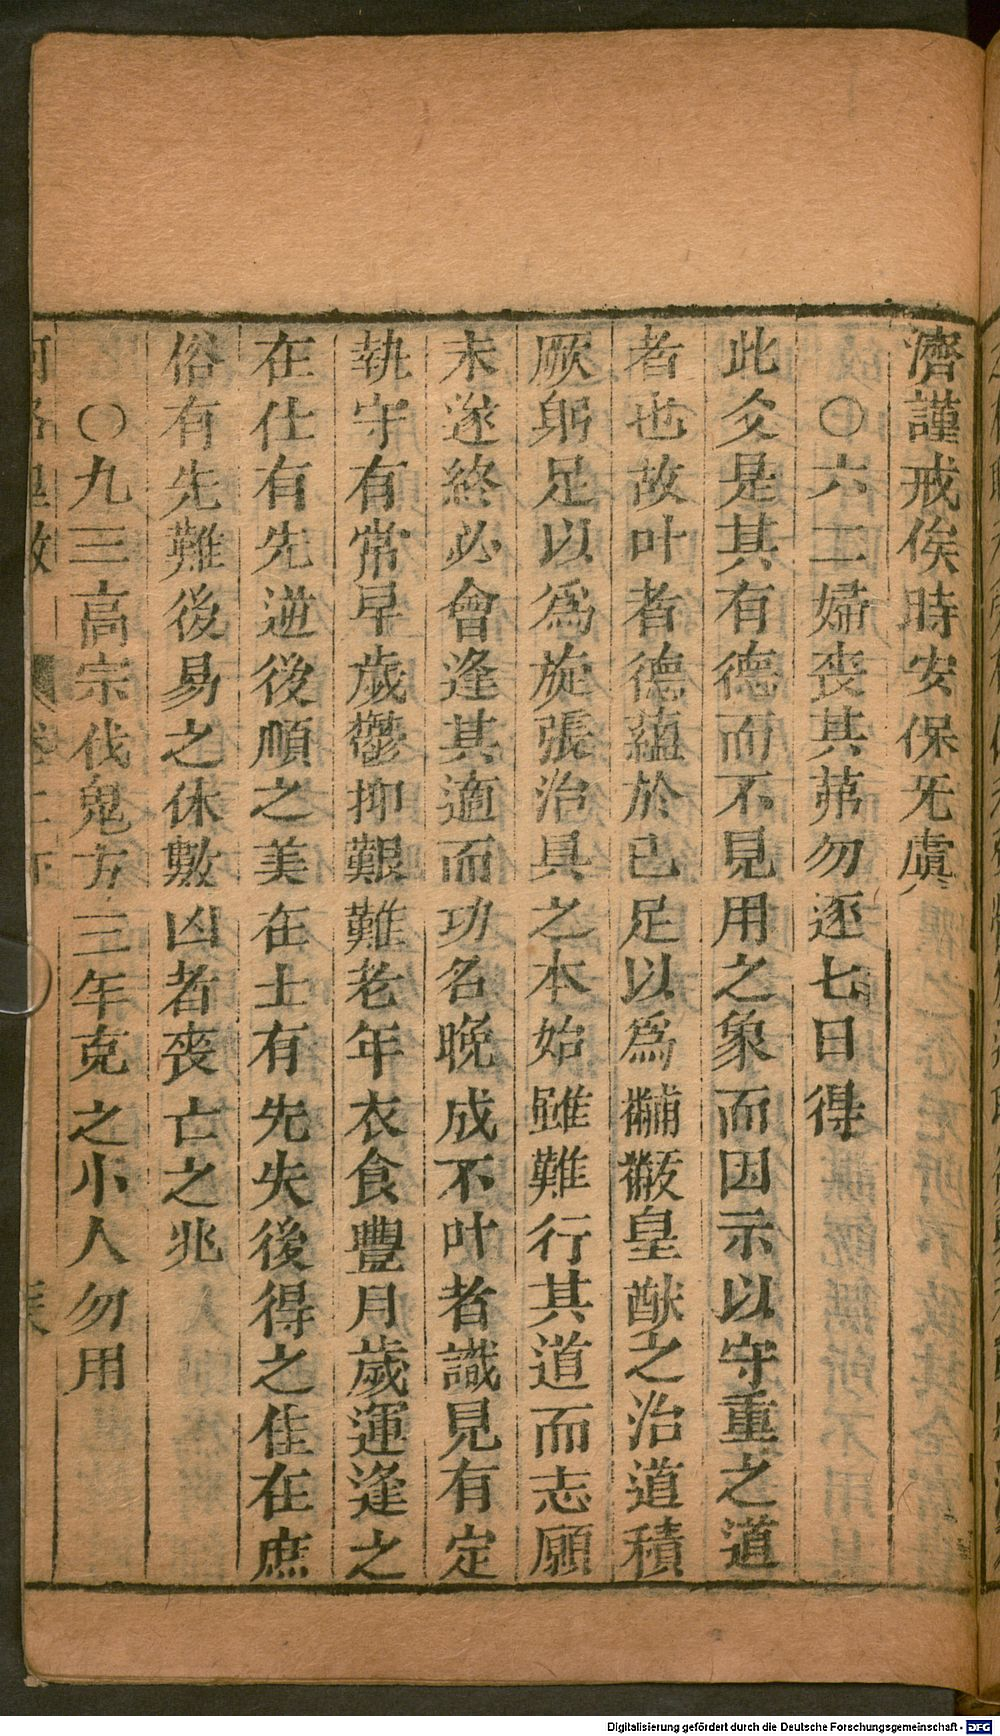 濟謹戒俟時安保无虞
○六二婦喪其茀勿逐七日得
此爻是其有德而不見用之象而因示以守重之道
者也故叶者德蘊於已足以爲黼黻皇猷之治道積
厥躬足以爲旋張治具之本始雖難行其道而志願
未遂終必會逢其適而功名晚成不叶者識見有定
執守有常早歲鬱抑艱難老年衣食豐月歲運逢之
在仕有先逆後順之美在士有先失後得之佳在庶
俗有先難後易之休數凶者喪亡之兆
○九三高宗伐鬼方三年克之小人勿用
Digitalisierung gefördert durch die Deutsche Forschungsgemeinschaft - DFG